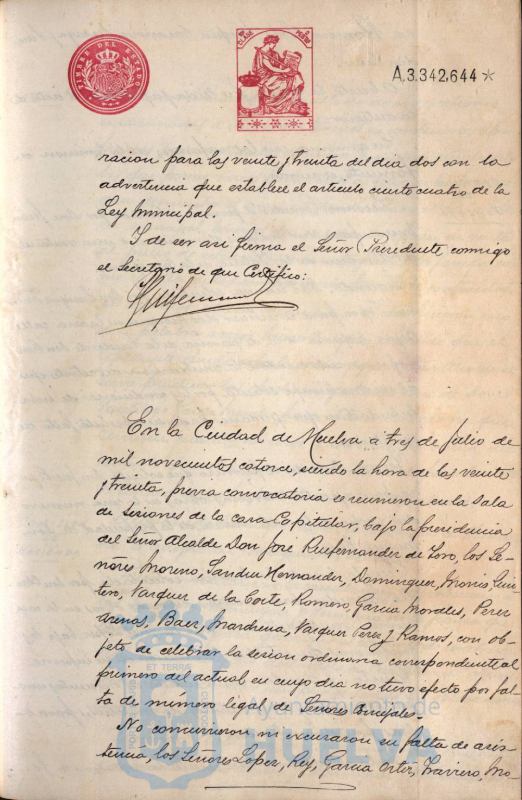 TIMBRE DEL ESTADO
CLASE
A.3.342,644 *
racion para las veinte y treinta del dia dos con la
advertencia que establece el articulo ciento cuatro de la
Ley Municipal.
Y de ser asi firma el Señor Presidente conmigo
el Secretario de que Certifico:
En la Ciudad de Huelva á tres de Julio de
mil novecientos catorce, siendo la hora de las veinte
y treinta, previa convocatoria se reunieron en la Sala
de Sesiones de la casa Capitular, bajo la presidencia
del Señor Alcalde Don José Ruifernandez de Toro, los Se-
ñores Moreno, Sandra Hernandez, Dominguez, Monis, Quin-
tero, Vazquez de la Corte, Romero, Garcia Morales, Perez
Arenas, Baez, Marchena, Vazquez Perez y Ramos, con ob-
jeto de celebrar la sesion ordinaria correspondiente al
primero del actual en cuyo dia no tuvo efecto por fal-
ta de número legal de Señores Concejales.
No concurrieron ni excusaron su falta de asis-
tencia, los Señores Lopez, Rey, Garcia Ortiz, Mo-
ET TERRE
Ayuntamiento de
HUELVA